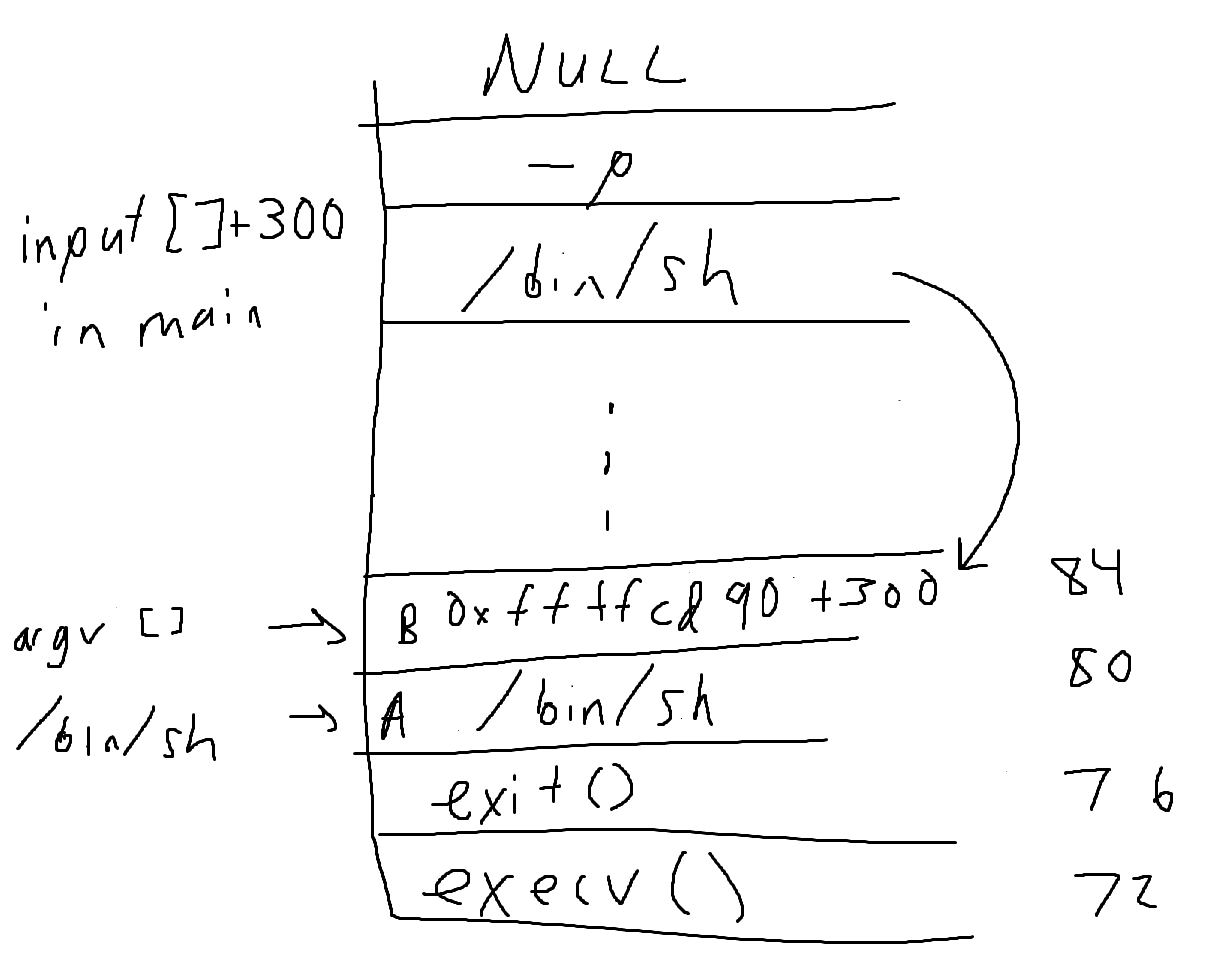 NULL
-p
input []+300
in main
/bin/sh
84
argv []
B 0xffffcd90 +300
80
/bin/sh
A /bin/sh
exit()
76
execv()
72